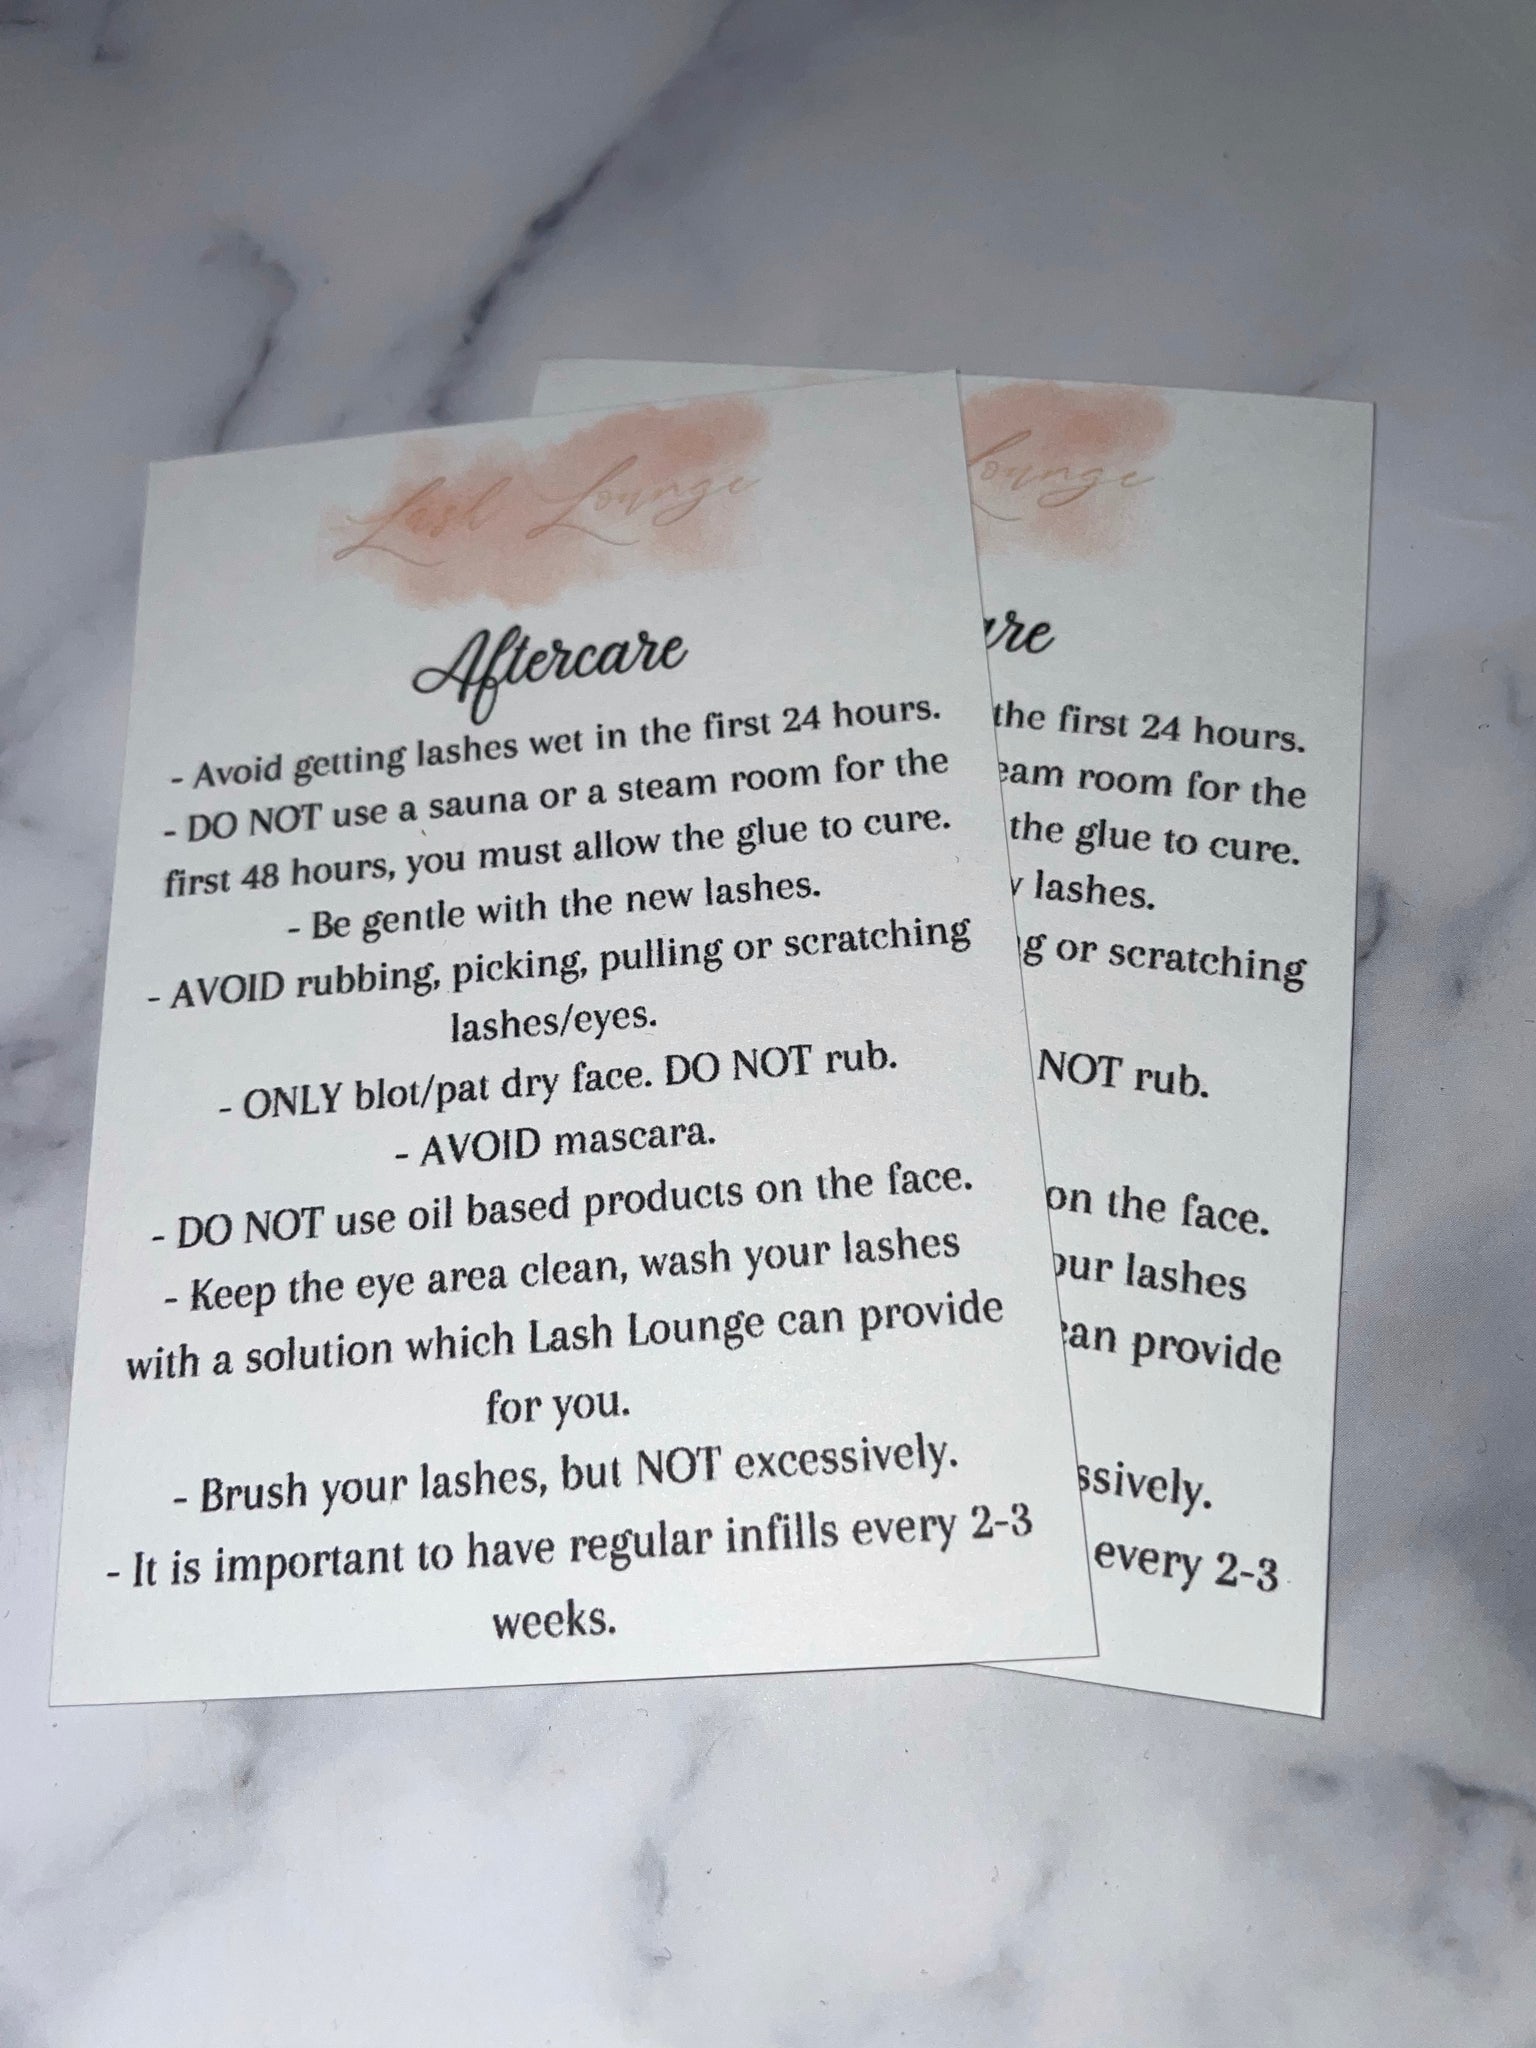 Lash Lounge
Aftercare
- Avoid getting lashes wet in the first 24 hours.
- DO NOT use a sauna or a steam room for the
first 48 hours, you must allow the glue to cure.
- Be gentle with the new lashes.
- AVOID rubbing, picking, pulling or scratching
lashes/eyes.
- ONLY blot/pat dry face. DO NOT rub.
- AVOID mascara.
- DO NOT use oil based products on the face.
- Keep the eye area clean, wash your lashes
with a solution which Lash Lounge can provide
for you.
- Brush your lashes, but NOT excessively.
- It is important to have regular infills every 2-3
weeks.
Lounge
are
the first 24 hours.
eam room for the
the glue to cure.
w lashes.
g or scratching
NOT rub.
on the face.
our lashes
can provide
ssively.
every 2-3